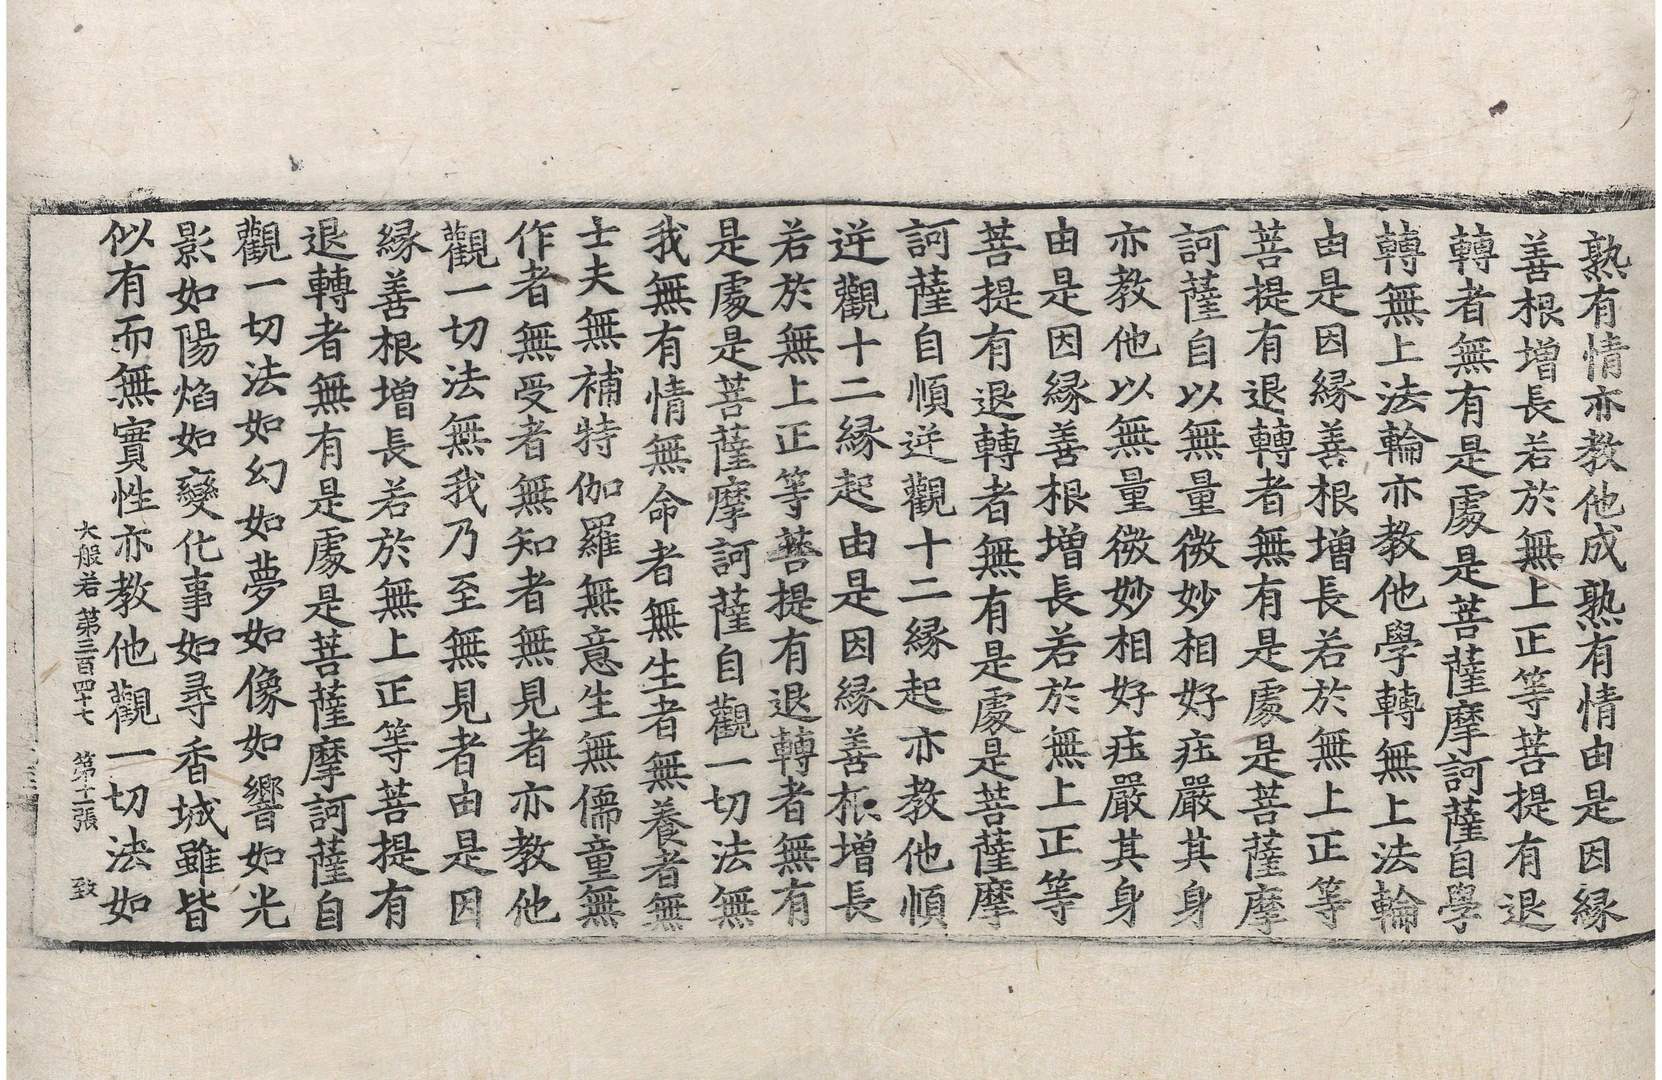 熟有情亦教他成熟有情由是因縁
善根増長若於無上正等菩提有退
轉者無有是處是菩薩摩訶薩自學
轉無上法輪亦教他學轉無上法輪
由是因縁善根増長若於無上正等
菩提有退轉者無有是處是菩薩摩
訶薩自以無量微妙相好㽵嚴其身
亦教他以無量微妙相好㽵嚴其身
由是因縁善根増長若於無上正等
菩提有退轉者無有是處是菩薩摩
訶薩自順逆觀十二縁起亦教他順
逆觀十二縁起由是因縁善根増長
若於無上正等菩提有退轉者無有
是處是菩薩摩訶薩自觀一切法無
我無有情無命者無生者無養者無
士夫無補特伽羅無意生無儒童無
作者無受者無知者無見者亦教他
觀一切法無我乃至無見者由是因
縁善根増長若於無上正等菩提有
退轉者無有是處是菩薩摩訶薩自
觀一切法如幻如夢如像如響如光
影如陽焰如變化事如尋香城雖皆
似有而無實性亦教他觀一切法如
大般若第三百四十七 第十二張 致